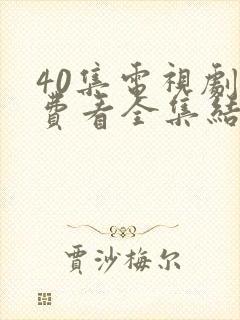 40集電視劇
費看全集結
賈沙梅尔